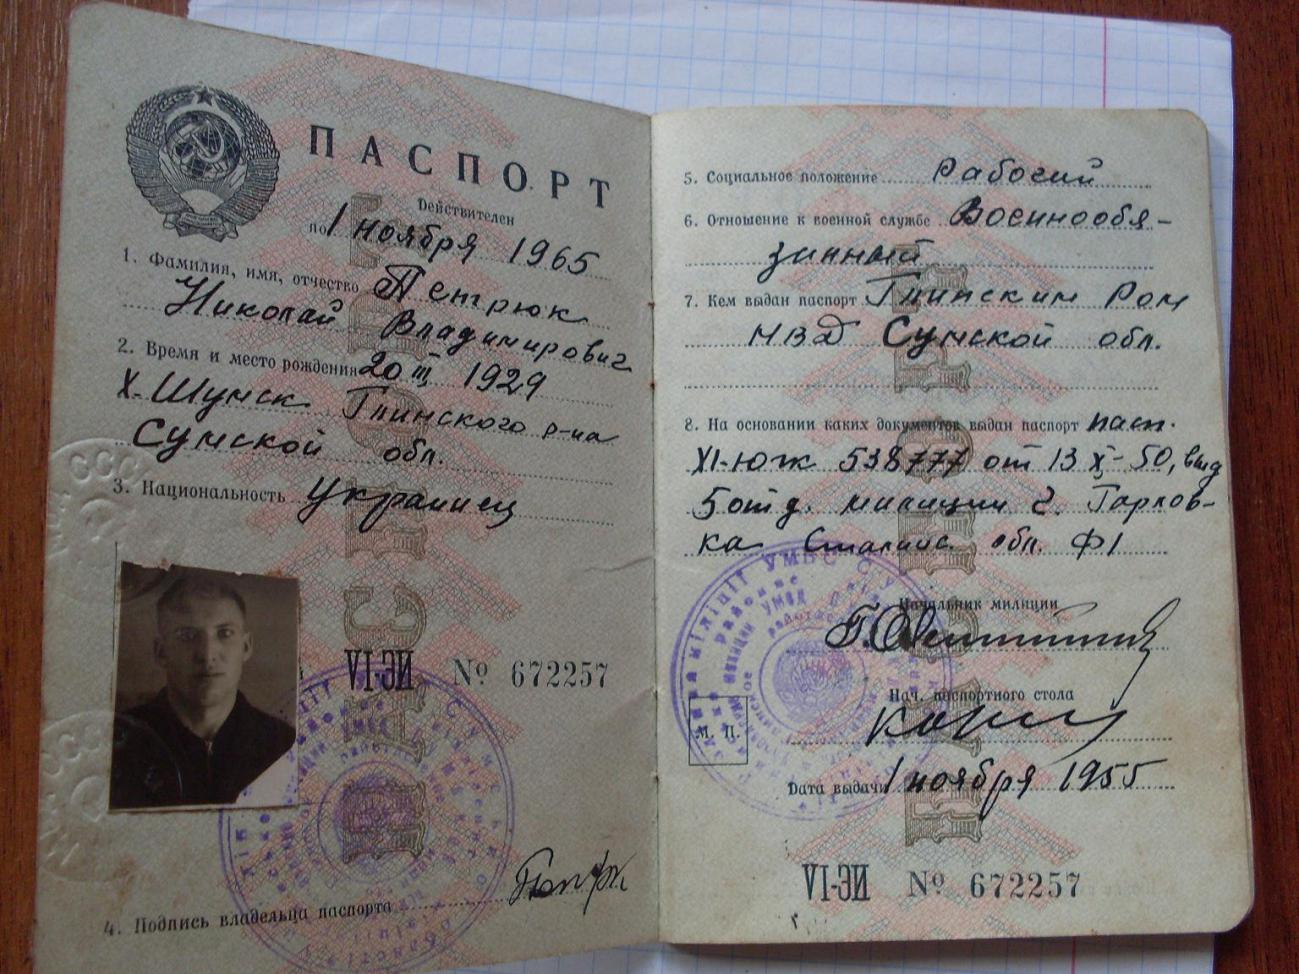 ПАСПОРТ
Действителен
по 1 ноября 1965
1. Фамилия, имя, отчество Петрюк
Николай Владимирович
2. Время и место рождения 20 III 1929
х. Шумск Глинского р-на
Сумской обл.
3. Национальность Украинец
VI-ЭИ № 672257
4. Подпись владельца паспорта
5. Социальное положение Рабочий
6. Отношение к военной службе Военнообя-
занный
7. Кем выдан паспорт Глинским Ром
МВД Сумской обл.
8. На основании каких документов выдан паспорт пасп.
XI-ЮЖ 538777 от 13 X-50, выд
5 отд. милиции г. Горлов-
ка Сталинс. обл. Ф1
Начальник милиции
Нач. паспортного стола
М. П.
Дата выдачи 1 ноября 1955
VI-ЭИ № 672257